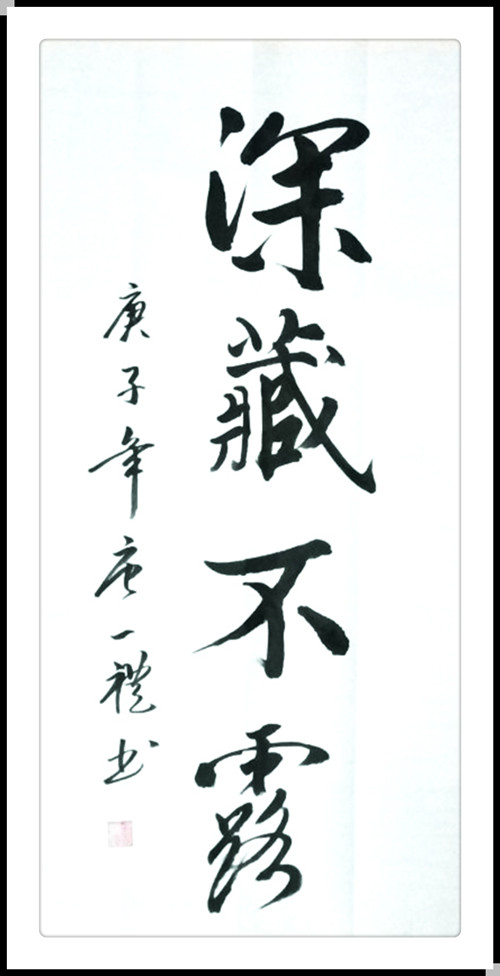 深藏不露
庚子年唐一礼书